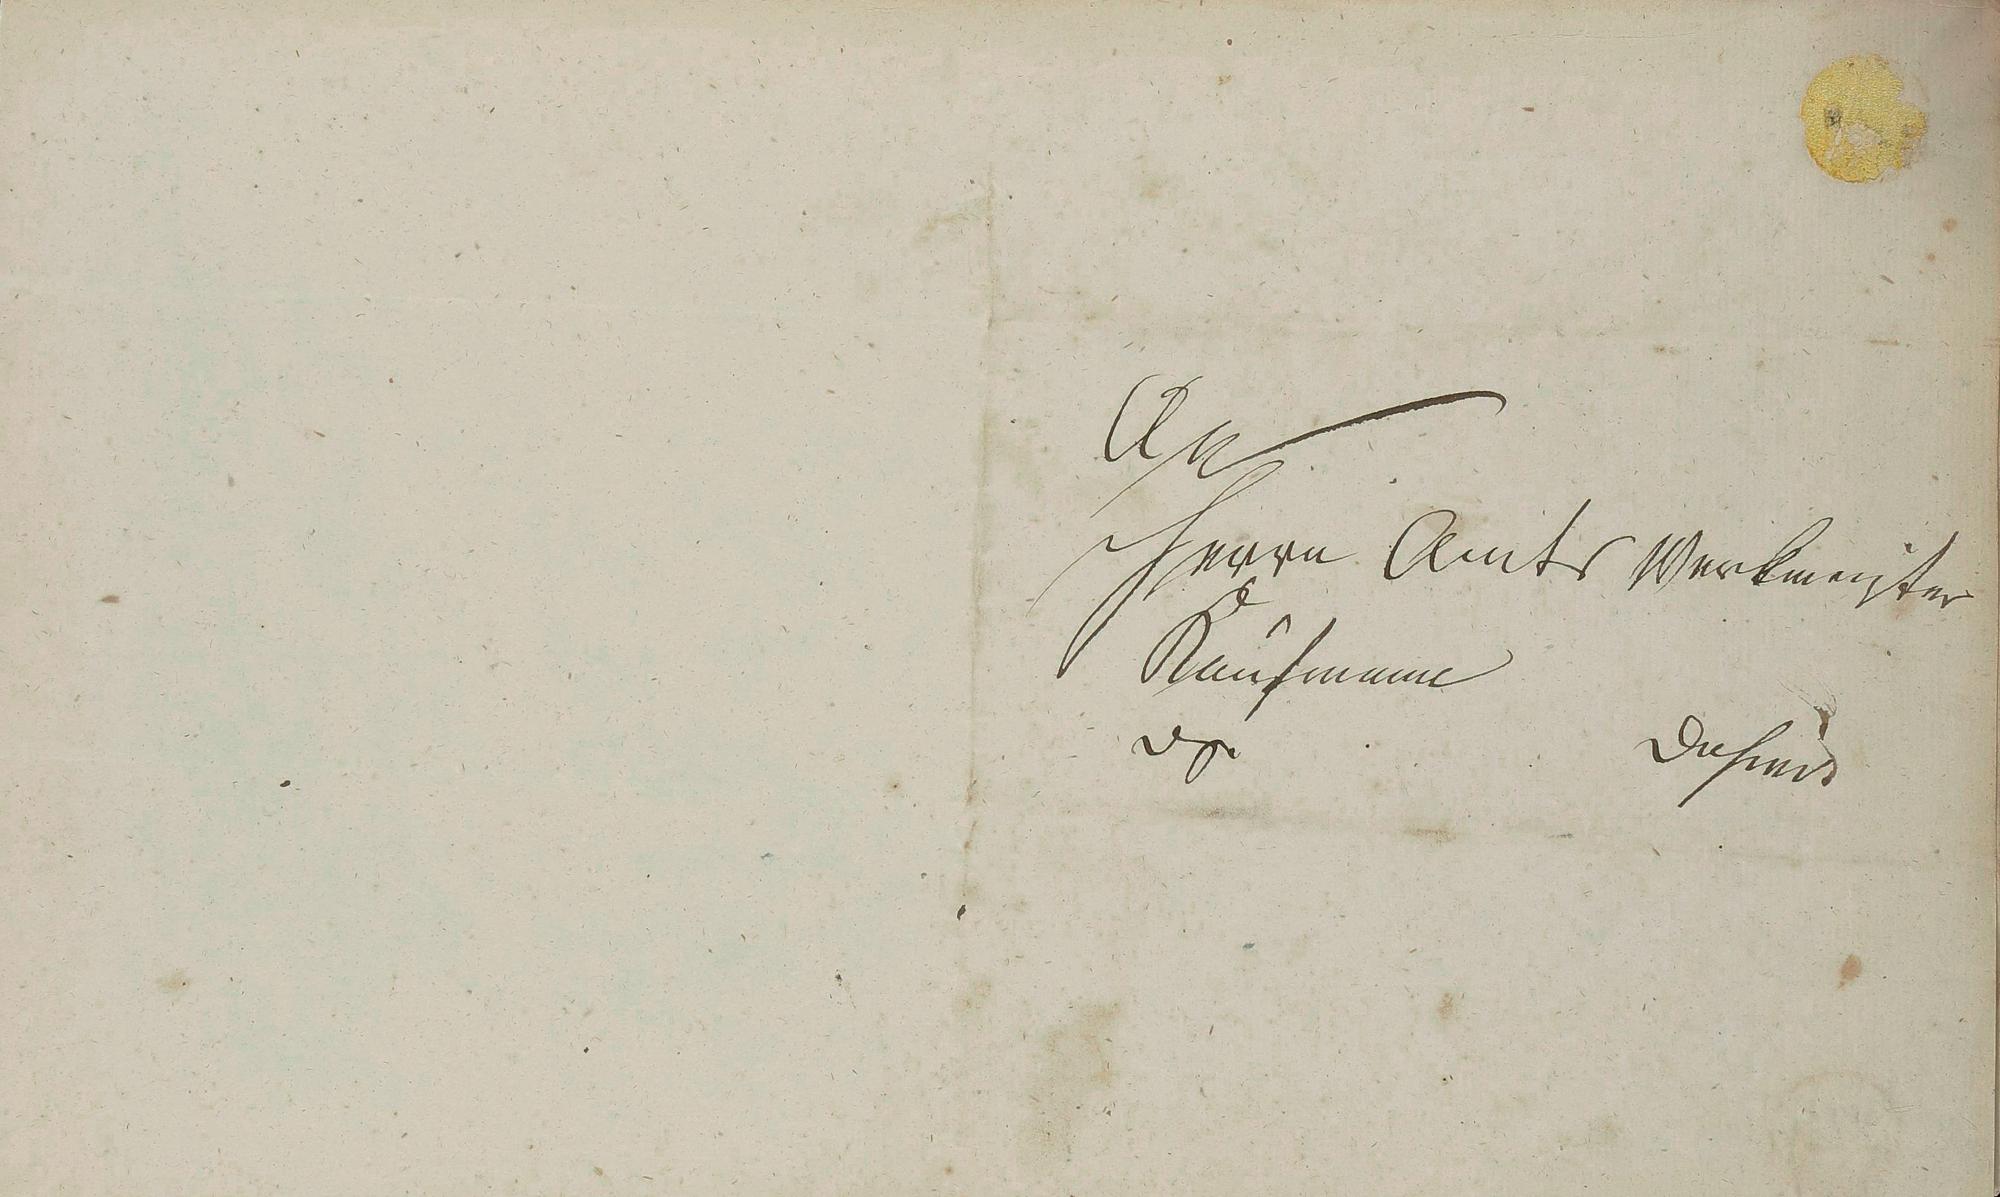 An
Herrn Amts Werkmeister
Kaufmann
dahier